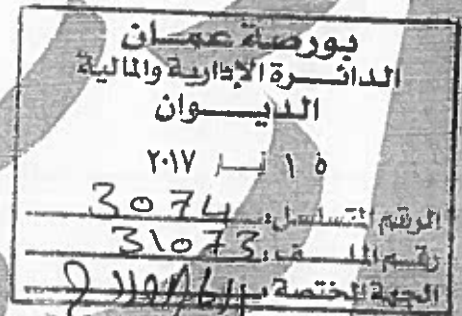 بورصة عمان
الدائرة الإدارية والمالية
الديوان
١٥ ٢٠١٧
الرقم المتسلسل: 3074
رقم الملف: 31073
الجهة المختصة: